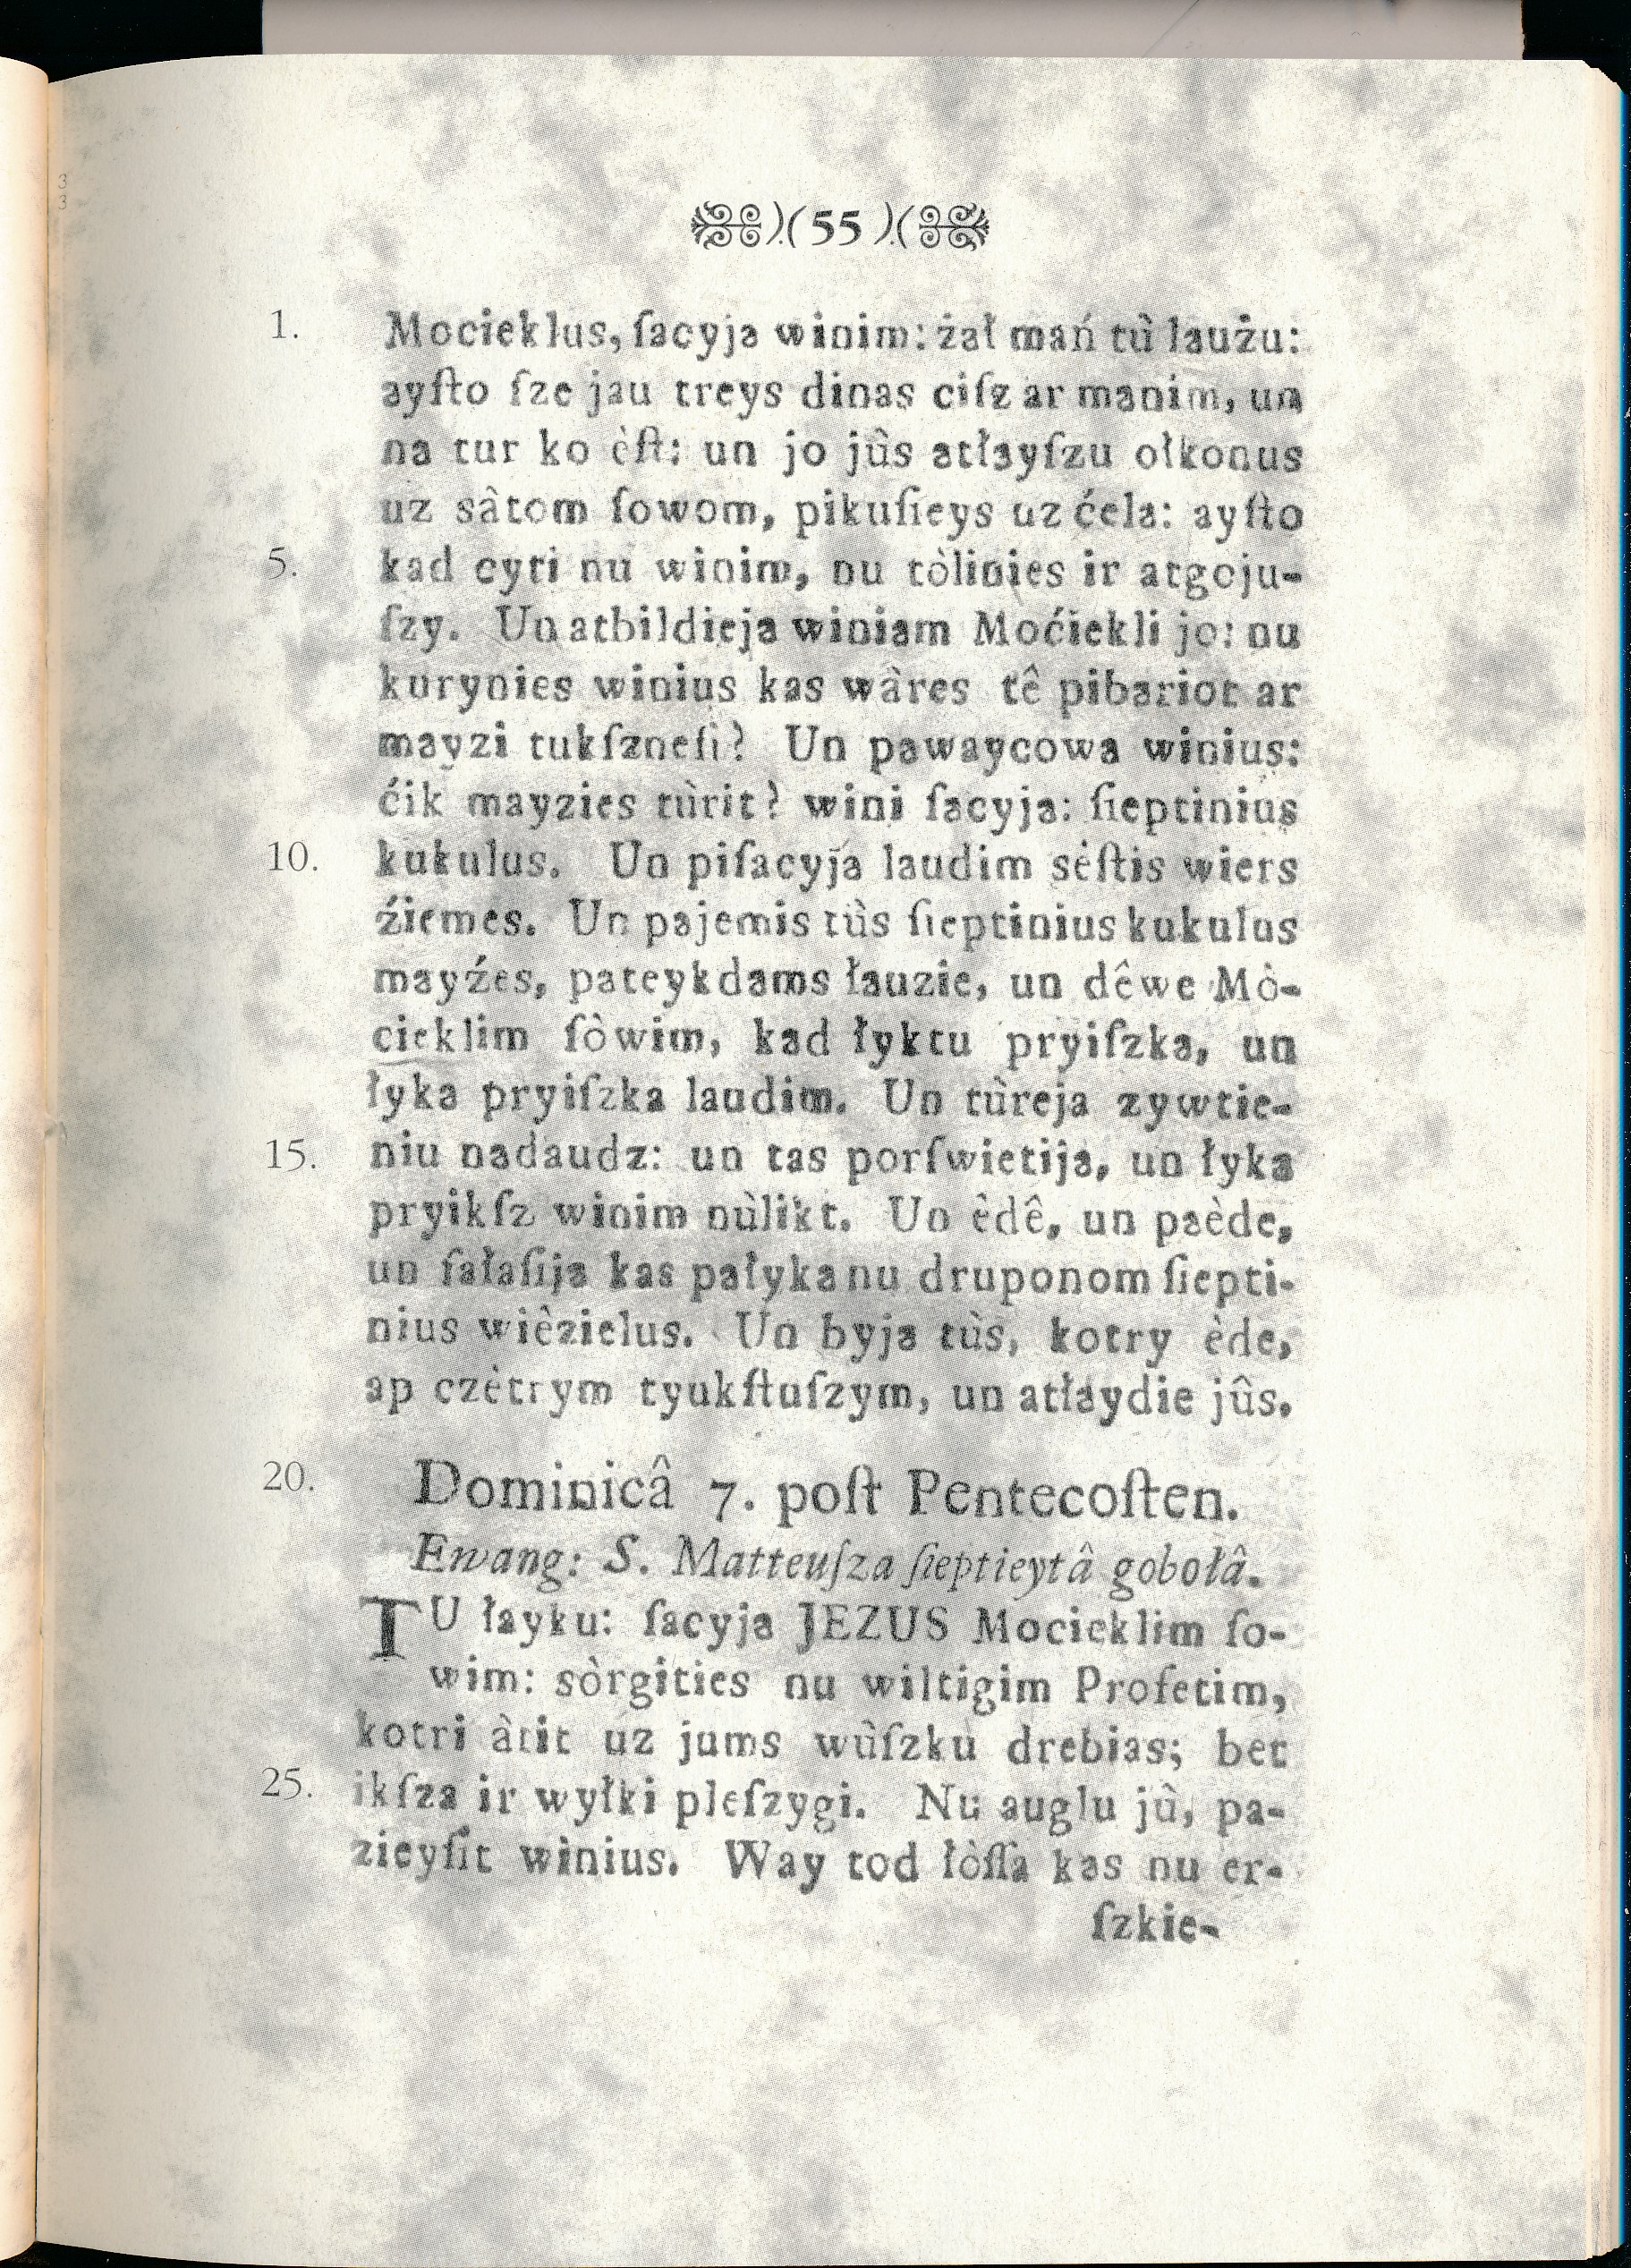 )(55)(
1. Mocieklus, ſacyja winim: żał mań tù laużu:
ayſto ſze jau treys dinas ciſz ar manim, un
na tur ko èſt: un jo jûs atłayſzu ołkonus
uz sâtom ſowom, pikuſieys uz ćela: ayſto
5. kad eyti nu winim, nu tòlinies ir atgoju-
ſzy. Un atbildieja winiam Moćiekli jo: nu
kurynies winius kas wàres tê pibariot ar
mayzi tukſzneſi? Un pawaycowa winius:
ćik mayzies tùrit? wini ſacyja: ſieptinius
10. kukulus. Un piſacyja laudim sèſtis wiers
źiemes. Un pajemis tùs ſieptinius kukulus
mayźes, pateykdams łauzie, un dêwe Mò-
cieklim ſòwim, kad łyktu pryiſzka, un
łyka pryiſzka laudim. Un tùreja zywtie-
15. niu nadaudz: un tas porſwietija, un łyka
pryikſz winim nùlikt. Un èdê, un paède,
un ſałaſija kas pałyka nu druponom ſiepti-
nius wiêzielus. Un byja tùs, kotry ède,
ap czètrym tyukſtuſzym, un atłaydie jûs.
20. Dominicâ 7. poſt Pentecoſten.
Ewang: S. Matteuſza ſieptieytâ gobołâ.
TU łayku: ſacyja JEZUS Mocieklim ſo-
wim: sòrgities nu wiltigim Profetim,
kotri àtit uz jums wùſzku drebias; bet
25. ikſza ir wyłki pleſzygi. Nu auglu jù, pa-
zieyſit winius. Way tod łòſſa kas nu er-
ſzkie-